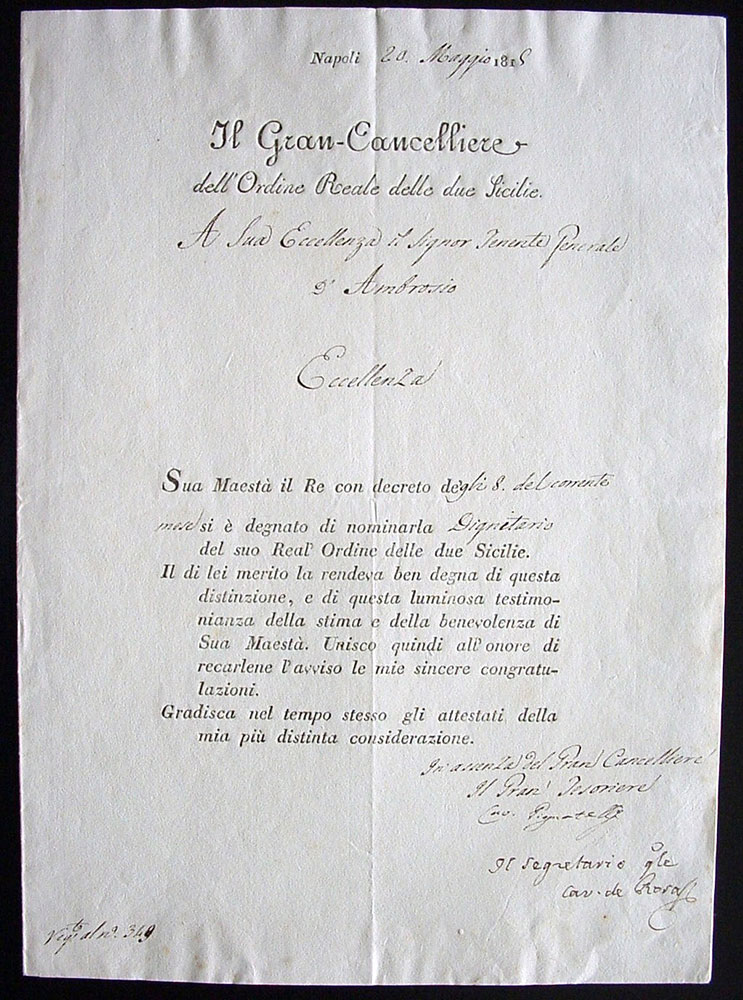 Napoli 20. Maggio 1815
Il Gran-Cancelliere
dell'Ordine Reale delle due Sicilie.
A Sua Eccellenza il Signor Tenente Generale
D'Ambrosio
Eccellenza
Sua Maestà il Re con decreto degli 8. del corrente
mese si è degnato di nominarla Dignitario
del suo Real' Ordine delle due Sicilie.
Il di lei merito la rendeva ben degna di questa
distinzione, e di questa luminosa testimo-
nianza della stima e della benevolenza di
Sua Maestà. Unisco quindi all'onore di
recarlene l'avviso le mie sincere congratu-
lazioni.
Gradisca nel tempo stesso gli attestati della
mia più distinta considerazione.
In assenza del Gran Cancelliere
Il Gran Tesoriere
Cav. Pignatelli
Il Segretario gle
Cav. de Rosa
al nº. 349